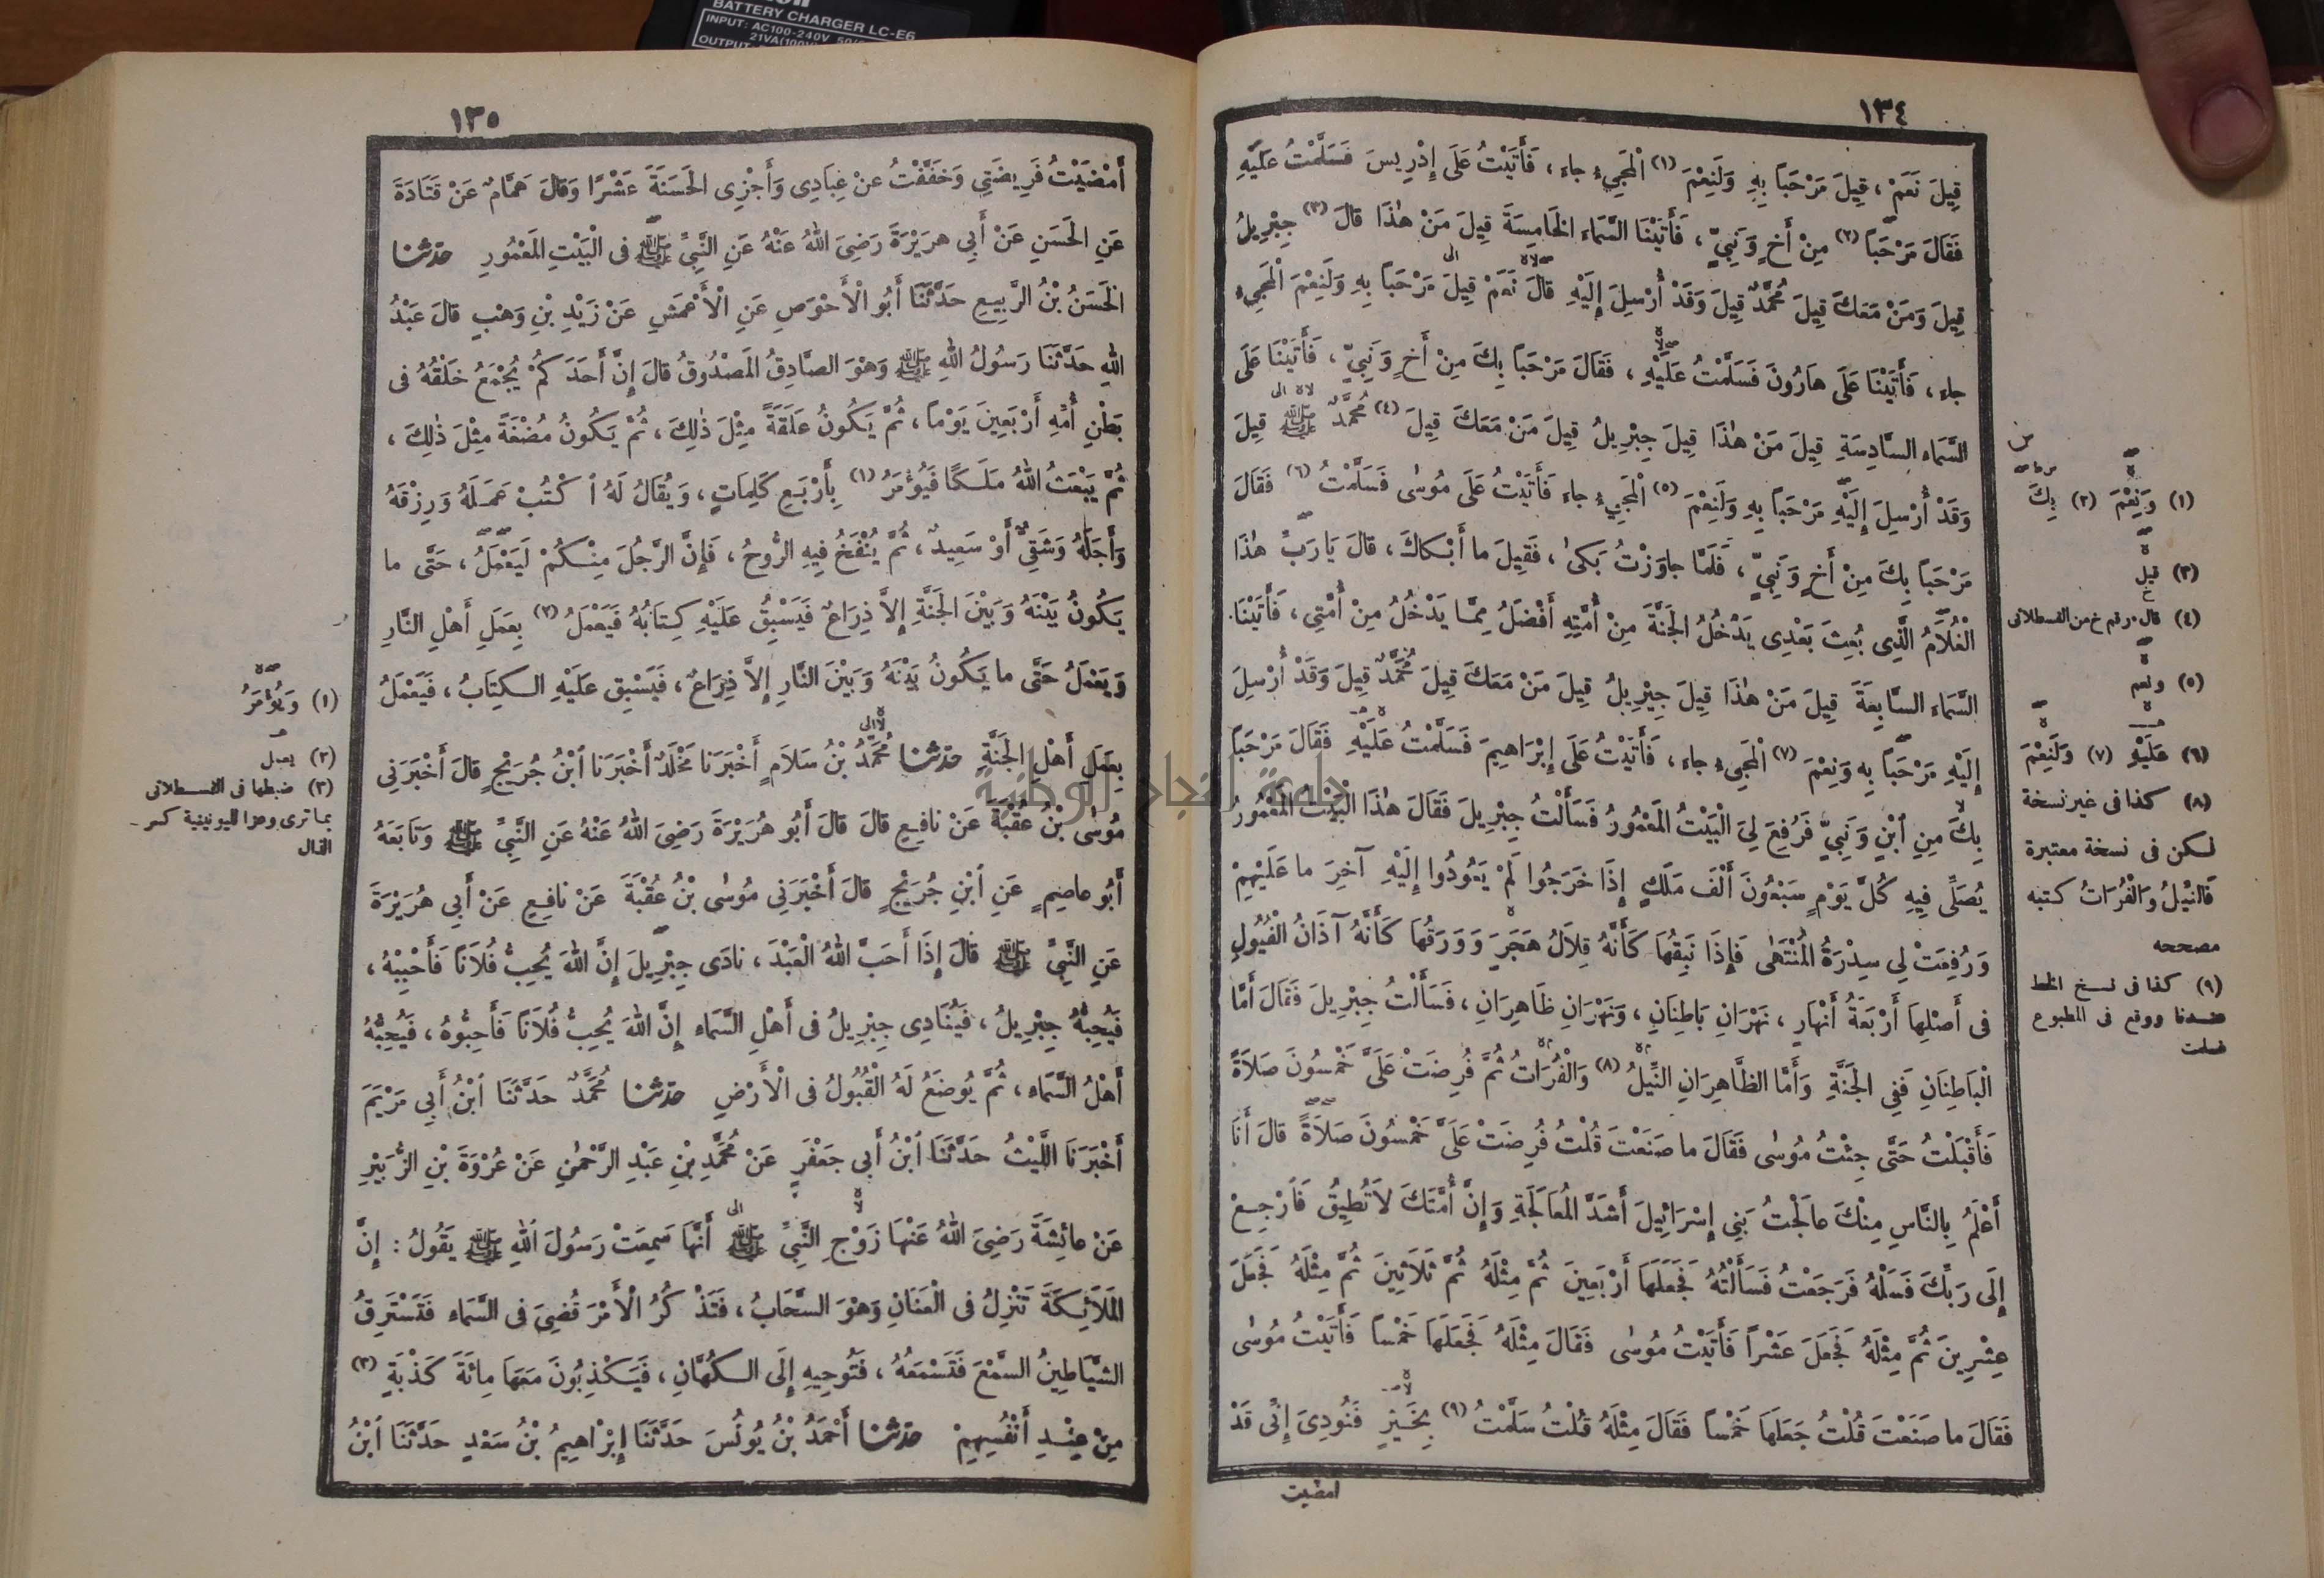 BATTERY CHARGER LC-E6
INPUT: AC100-240V
21VA(100V)
OUTPUT:
١٣٤
قِيلَ نَعَمْ ، قِيلَ مَرْحَبًا بِهِ وَلَنِعْمَ (١) الْمَجِيءُ جاء ، فَأَتَيْتُ عَلَى إِدْرِيسَ فَسَلَّمْتُ عَلَيْهِ
فَقَالَ مَرْحَبًا (٢) مِنْ أَخٍ وَنَبِيٍّ ، فَأَتَيْنَا السَّمَاءَ الخَامِسَةَ قِيلَ مَنْ هٰذَا قالَ (٣) جِبْرِيلُ
قِيلَ وَمَنْ مَعَكَ قِيلَ مُحَمَّدٌ قِيلَ وَقَدْ أُرْسِلَ إِلَيْهِ قالَ نَعَمْ قِيلَ مَرْحَبًا بِهِ وَلَنِعْمَ الْمَجِيءُ
جاء ، فَأَتَيْنَا عَلَى هَارُونَ فَسَلَّمْتُ عَلَيْهِ ، فَقَالَ مَرْحَبًا بِكَ مِنْ أَخٍ وَنَبِيٍّ ، فَأَتَيْنَا عَلَى
السَّمَاء السَّادِسَةِ قِيلَ مَنْ هٰذَا قِيلَ جِبْرِيلُ قِيلَ مَنْ مَعَكَ قِيلَ (٤) مُحَمَّدٌ ﷺ قِيلَ
وَقَدْ أُرْسِلَ إِلَيْهِ مَرْحَبًا بِهِ وَلَنِعْمَ (٥) الْمَجِيءُ جاء فَأَتَيْتُ عَلَى مُوسٰى فَسَلَّمْتُ (٦) فَقَالَ
مَرْحَبًا بِكَ مِنْ أَخٍ وَنَبِيٍّ ، فَلَمَّا جاوَزْتُ بَكَىٰ ، فَقِيلَ ما أَبْكاكَ ، قالَ يَا رَبِّ هٰذَا
الْغُلَامُ الَّذِي بُعِثَ بَعْدِي يَدْخُلُ الجَنَّةَ مِنْ أُمَّتِهِ أَفْضَلُ مِمَّا يَدْخُلُ مِنْ أُمَّتِي ، فَأَتَيْنَا
السَّمَاء السَّابِعَةَ قِيلَ مَنْ هٰذَا قِيلَ جِبْرِيلُ قِيلَ مَنْ مَعَكَ قِيلَ مُحَمَّدٌ قِيلَ وَقَدْ أُرْسِلَ
إِلَيْهِ مَرْحَبًا بِهِ وَنِعْمَ (٧) الْمَجِيءُ جاء ، فَأَتَيْتُ عَلَى إِبْرَاهِيمَ فَسَلَّمْتُ عَلَيْهِ فَقَالَ مَرْحَبًا
بِكَ مِنِ ابْنٍ وَنَبِيٍّ فَرُفِعَ لِيَ الْبَيْتُ المَعْمُورُ فَسَأَلْتُ جِبْرِيلَ فَقَالَ هٰذَا الْبَيْتُ المَعْمُورُ
يُصَلِّي فِيهِ كُلَّ يَوْمٍ سَبْعُونَ أَلْفَ مَلَكٍ إِذَا خَرَجُوا لَمْ يَعُودُوا إِلَيْهِ آخِرَ ما عَلَيْهِمْ
وَرُفِعَتْ لِي سِدْرَةُ المُنْتَهَى فَإِذَا نَبِقُهَا كَأَنَّهُ قِلَالُ هَجَرَ وَوَرَقُهَا كَأَنَّهُ آذَانُ الْفُيُولِ
فِي أَصْلِهَا أَرْبَعَةُ أَنْهَارٍ ، نَهْرَانِ بَاطِنَانِ ، وَنَهْرَانِ ظَاهِرَانِ ، فَسَأَلْتُ جِبْرِيلَ فَقَالَ أَمَّا
الْبَاطِنَانِ فَفِي الجَنَّةِ وَأَمَّا الظَّاهِرَانِ النِّيلُ (٨) وَالْفُرَاتُ ثُمَّ فُرِضَتْ عَلَيَّ خَمْسُونَ صَلَاةً
فَأَقْبَلْتُ حَتَّى جِئْتُ مُوسٰى فَقَالَ ما صَنَعْتَ قُلْتُ فُرِضَتْ عَلَيَّ خَمْسُونَ صَلَاةً قالَ أَنَا
أَعْلَمُ بِالنَّاسِ مِنْكَ عالَجْتُ بَنِي إِسْرَائِيلَ أَشَدَّ المُعَالَجَةِ وَإِنَّ أُمَّتَكَ لَا تُطِيقُ فَارْجِعْ
إِلَى رَبِّكَ فَسَلْهُ فَرَجَعْتُ فَسَأَلْتُهُ فَجَعَلَهَا أَرْبَعِينَ ثُمَّ مِثْلَهُ ثُمَّ ثَلَاثِينَ ثُمَّ مِثْلَهُ فَجَعَلَ
عِشْرِينَ ثُمَّ مِثْلَهُ فَجَعَلَ عَشْرًا فَأَتَيْتُ مُوسٰى فَقَالَ مِثْلَهُ فَجَعَلَهَا خَمْسًا فَأَتَيْتُ مُوسٰى
فَقَالَ ما صَنَعْتَ قُلْتُ جَعَلَهَا خَمْسًا فَقَالَ مِثْلَهُ قُلْتُ سَلَّمْتُ (٩) بِخَيْرٍ فَنُودِيَ إِنِّي قَدْ
امضيت
(١) وَنِعْمَ (٢) بِكَ
(٣) قيل
(٤) قال ورقم خ من القسطلانى
(٥) ونعم
(٦) عَلَيْهِ (٧) وَلَنِعْمَ
(٨) كذا فى غير نسخة
لكن فى نسخة معتبرة
فَالنِّيلُ وَالْفُرَاتُ كتبه
مصححه
(٩) كذا فى نسخ الخط
عندنا ووقع فى المطبوع
١٣٥
أَمْضَيْتُ فَرِيضَتِي وَخَفَّفْتُ عَنْ عِبَادِي وَأَجْزِي الحَسَنَةَ عَشْرًا وَقالَ هَمَّامٌ عَنْ قَتَادَةَ
عَنِ الحَسَنِ عَنْ أَبِي هُرَيْرَةَ رَضِيَ اللهُ عَنْهُ عَنِ النَّبِيِّ ﷺ فِي الْبَيْتِ المَعْمُورِ حدثنا
الحَسَنُ بْنُ الرَّبِيعِ حَدَّثَنَا أَبُو الْأَحْوَصِ عَنِ الْأَعْمَشِ عَنْ زَيْدِ بْنِ وَهْبٍ قالَ عَبْدُ
اللهِ حَدَّثَنَا رَسُولُ اللهِ ﷺ وَهْوَ الصَّادِقُ المَصْدُوقُ قالَ إِنَّ أَحَدَكُمْ يُجْمَعُ خَلْقُهُ فِي
بَطْنِ أُمِّهِ أَرْبَعِينَ يَوْمًا ، ثُمَّ يَكُونُ عَلَقَةً مِثْلَ ذٰلِكَ ، ثُمَّ يَكُونُ مُضْغَةً مِثْلَ ذٰلِكَ ،
ثُمَّ يَبْعَثُ اللهُ مَلَكًا فَيُؤْمَرُ (١) بِأَرْبَعِ كَلِمَاتٍ ، وَيُقَالُ لَهُ اكْتُبْ عَمَلَهُ وَرِزْقَهُ
وَأَجَلَهُ وَشَقِيٌّ أَوْ سَعِيدٌ ، ثُمَّ يُنْفَخُ فِيهِ الرُّوحُ ، فَإِنَّ الرَّجُلَ مِنْكُمْ لَيَعْمَلُ ، حَتَّى ما
يَكُونُ بَيْنَهُ وَبَيْنَ الجَنَّةِ إِلَّا ذِرَاعٌ فَيَسْبِقُ عَلَيْهِ كِتَابُهُ فَيَعْمَلُ (٢) بِعَمَلِ أَهْلِ النَّارِ
وَيَعْمَلُ حَتَّى ما يَكُونُ بَيْنَهُ وَبَيْنَ النَّارِ إِلَّا ذِرَاعٌ ، فَيَسْبِقُ عَلَيْهِ الْكِتَابُ ، فَيَعْمَلُ
بِعَمَلِ أَهْلِ الجَنَّةِ حدثنا مُحَمَّدُ بْنُ سَلَامٍ أَخْبَرَنَا مَخْلَدٌ أَخْبَرَنَا ابْنُ جُرَيْجٍ قالَ أَخْبَرَنِي
مُوسٰى بْنُ عُقْبَةَ عَنْ نافِعٍ قالَ قالَ أَبُو هُرَيْرَةَ رَضِيَ اللهُ عَنْهُ عَنِ النَّبِيِّ ﷺ وَتَابَعَهُ
أَبُو عاصِمٍ عَنِ ابْنِ جُرَيْجٍ قالَ أَخْبَرَنِي مُوسٰى بْنُ عُقْبَةَ عَنْ نافِعٍ عَنْ أَبِي هُرَيْرَةَ
عَنِ النَّبِيِّ ﷺ قالَ إِذَا أَحَبَّ اللهُ الْعَبْدَ ، نادَى جِبْرِيلَ إِنَّ اللهَ يُحِبُّ فُلَانًا فَأَحْبِبْهُ ،
فَيُحِبُّهُ جِبْرِيلُ ، فَيُنَادِي جِبْرِيلُ فِي أَهْلِ السَّمَاء إِنَّ اللهَ يُحِبُّ فُلَانًا فَأَحِبُّوهُ ، فَيُحِبُّهُ
أَهْلُ السَّمَاء ، ثُمَّ يُوضَعُ لَهُ الْقَبُولُ فِي الْأَرْضِ حدثنا مُحَمَّدٌ حَدَّثَنَا ابْنُ أَبِي مَرْيَمَ
أَخْبَرَنَا اللَّيْثُ حَدَّثَنَا ابْنُ أَبِي جَعْفَرٍ عَنْ مُحَمَّدِ بْنِ عَبْدِ الرَّحْمٰنِ عَنْ عُرْوَةَ بْنِ الزُّبَيْرِ
عَنْ عائِشَةَ رَضِيَ اللهُ عَنْهَا زَوْجِ النَّبِيِّ ﷺ أَنَّهَا سَمِعَتْ رَسُولَ اللهِ ﷺ يَقُولُ : إِنَّ
المَلَائِكَةَ تَنْزِلُ فِي الْعَنَانِ وَهْوَ السَّحَابُ ، فَتَذْكُرُ الْأَمْرَ قُضِيَ فِي السَّمَاء فَتَسْتَرِقُ
الشَّيَاطِينُ السَّمْعَ فَتَسْمَعُهُ ، فَتُوحِيهِ إِلَى الْكُهَّانِ ، فَيَكْذِبُونَ مَعَهَا مِائَةَ كَذْبَةٍ (٣)
مِنْ عِنْدِ أَنْفُسِهِمْ حدثنا أَحْمَدُ بْنُ يُونُسَ حَدَّثَنَا إِبْرَاهِيمُ بْنُ سَعْدٍ حَدَّثَنَا ابْنُ
(١) وَيُؤْمَرُ
(٢) يعمل
(٣) ضبطها فى القسطلانى
بما ترى وعزا لليونينية كسر
الذال
جامعة النجاح الوطنية